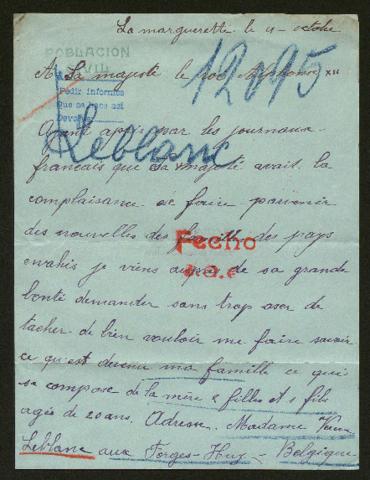 La marguerette le 11 octobre
POBLACION
CIVIL
12095
A Sa majesté le roi Alphonse XII
Pedir informes
Que se hace así
Devolver
Ayant appris par les journaux
Leblanc
français que sa majesté avait la
complaisance de faire parvenir
des nouvelles des familles des pays
Fecho
envahis je viens auprès de sa grande
bonté demander sans trop oser de
tacher de bien vouloir me faire savoir
ce qu'est devenu ma famille ce qui
se compose de la mère 2 filles et 1 fils
agés de 20 ans. Adresse. Madame
Leblanc aux Forges-Huy - Belgique